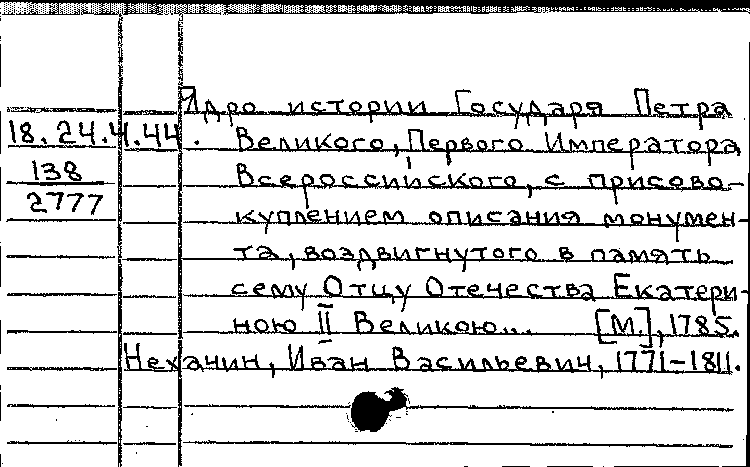 Ядро истории Государя Петра
18.24.4.44. Великого, Первого Императора
138 Всероссийского, с присово-
2777 куплением описания монумен-
та, воздвигнутого в память
сему Отцу Отечества Екатери-
ною II Великою... [М.], 1785.
Нехачин, Иван Васильевич, 1771-1811.